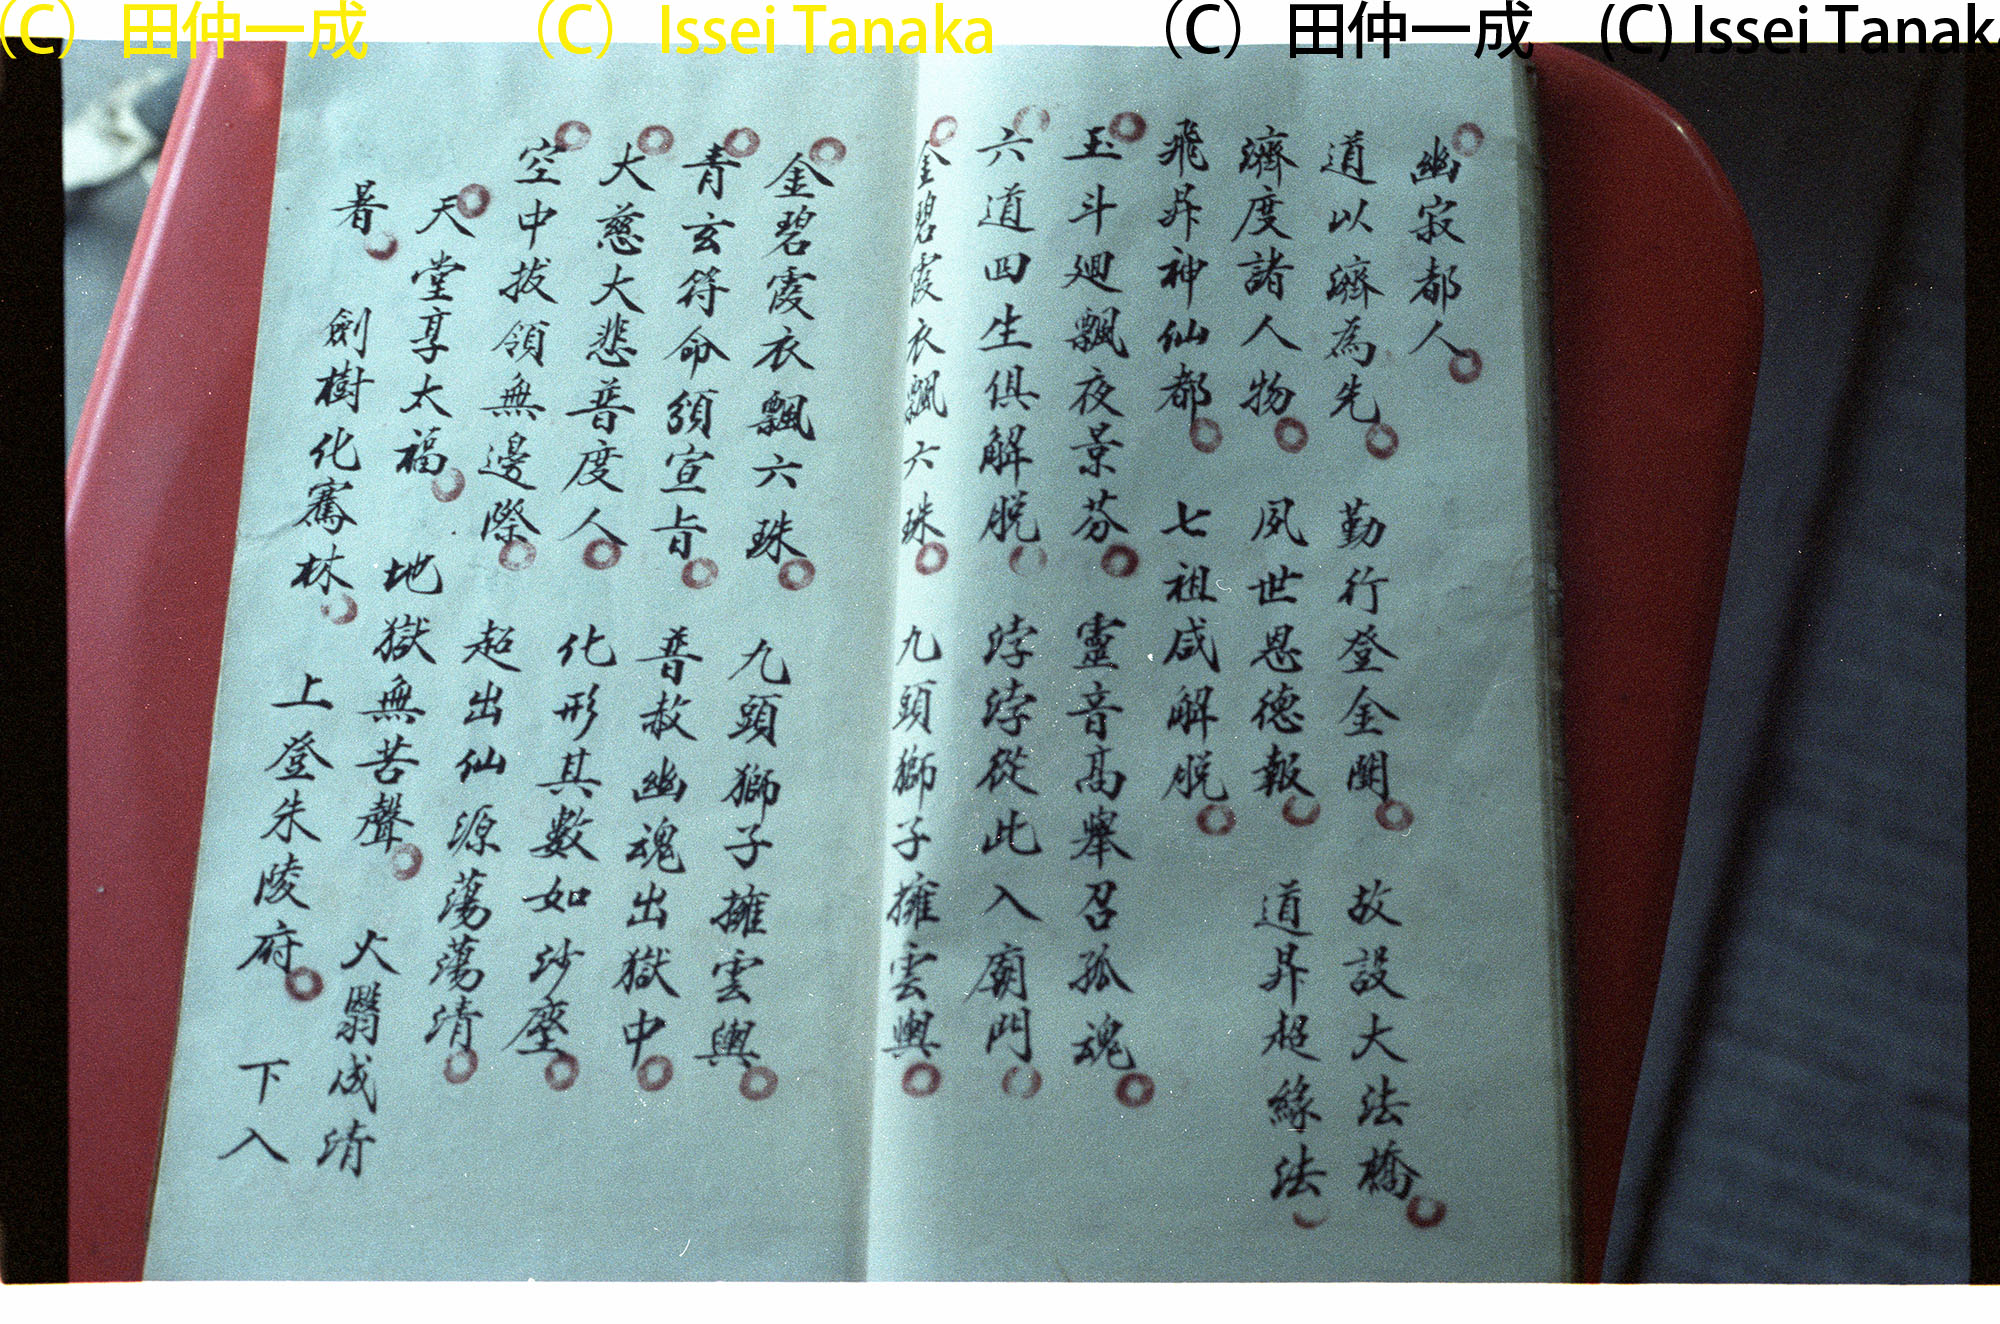 (C) 田仲一成 (C) Issei Tanaka (C) 田仲一成 (C) Issei Tanaka
幽寂都人
道以濟為先 勤行登金闕 故設大法橋
濟度諸人物 夙世恩德報 道昇超緣法
飛昇神仙都 七祖咸解脱
玉斗廻飄夜景芬 靈音高舉召孤魂
六道四生俱解脱 浡浡從此入廟門
金碧霞衣飄六珠 九頭獅子擁雲輿
金碧霞衣飄六珠 九頭獅子擁雲輿
青玄符命頒宣旨 普赦幽魂出獄中
大慈大悲普度人 化形其數如沙塵
空中拔領無邊際 超出仙源蕩蕩清
天堂享太福 地獄無苦聲 火翳成清
暑 劍樹化騫林 上登朱陵府 下入